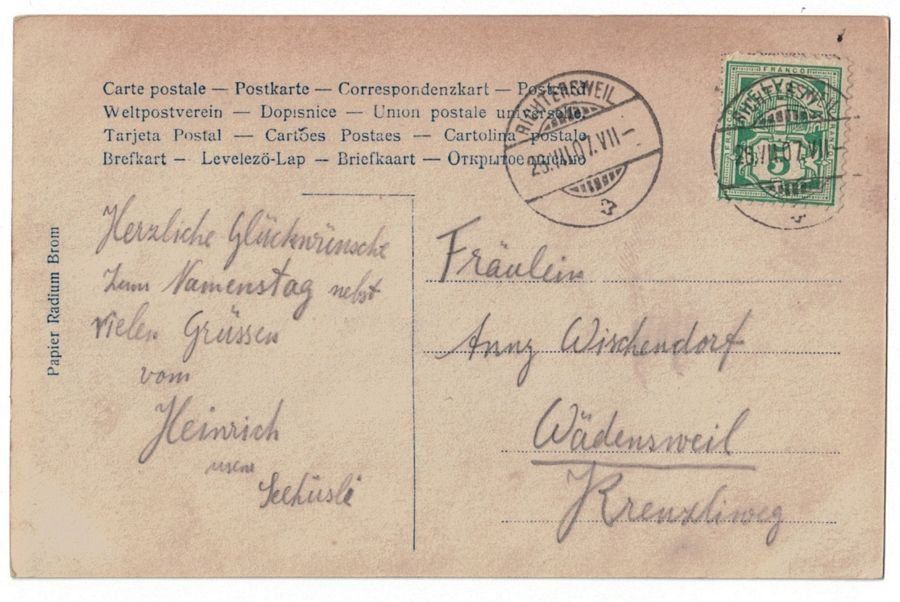 Carte postale — Postkarte — Correspondenzkart — Postkarta
Weltpostverein — Dopisnice — Union postale universelle
Tarjeta Postal — Cartões Postaes — Cartolina postale
Brefkart — Levelező-Lap — Briefkaart — Открытое письмо
RICHTERSWEIL
29.VII.07.VII-
3
FRANCO
5
RICHTERSWEIL
29.VII.07.VII-
3
Papier Radium Brom
Herzliche Glückwünsche
zum Namenstag nebst
vielen Grüssen
vom
Heinrich
Seehüsli
Fräulein
Anny Wischendorf
Wädensweil
Krenzliweg